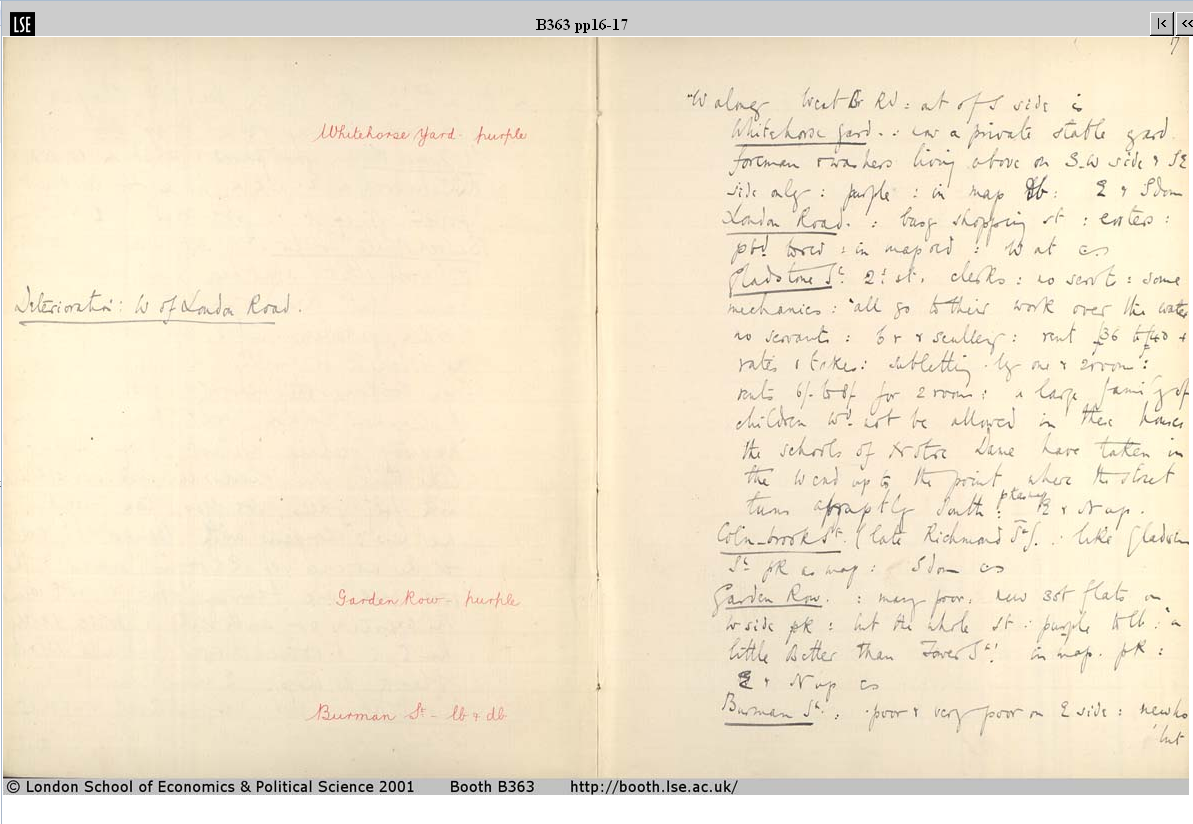 LSE
B363 pp16-17
Whitehorse Yard - purple
Deterioration: W of London Road.
Garden Row - purple
Burman St - lb & db
17
W along West Br Rd : at of S side is
Whitehorse Yard. : now a private stable yard
foreman & washers living above on S.W side & SE
side only : purple : in map db : E & S down
London Road. : busy shopping st : costers :
in map red : W at cs
Gladstone St. 2½ st. clerks : no servts : some
mechanics : "all go to their work over the water
no servants : 6 r & scullery : rent £36 to £40 +
rates & takes : subletting by one & 2 room :
rents 6/- to 8/- for 2 rooms : a large family of
children wd not be allowed in these houses
the schools of Notre Dame have taken in
the W end up to the point where the street
turns abruptly South : E & N up.
Colnbrook St. (late Richmond St). : like Gladstone
St. pk as map : S down cs
Garden Row. : many poor, new 3 st flats on
W side pk : but the whole st : purple to lb : "a
little better than Tower St" in map. pk :
E & N up cs
Burman St. : poor & very poor on E side : new ho
but
© London School of Economics & Political Science 2001 Booth B363 http://booth.lse.ac.uk/